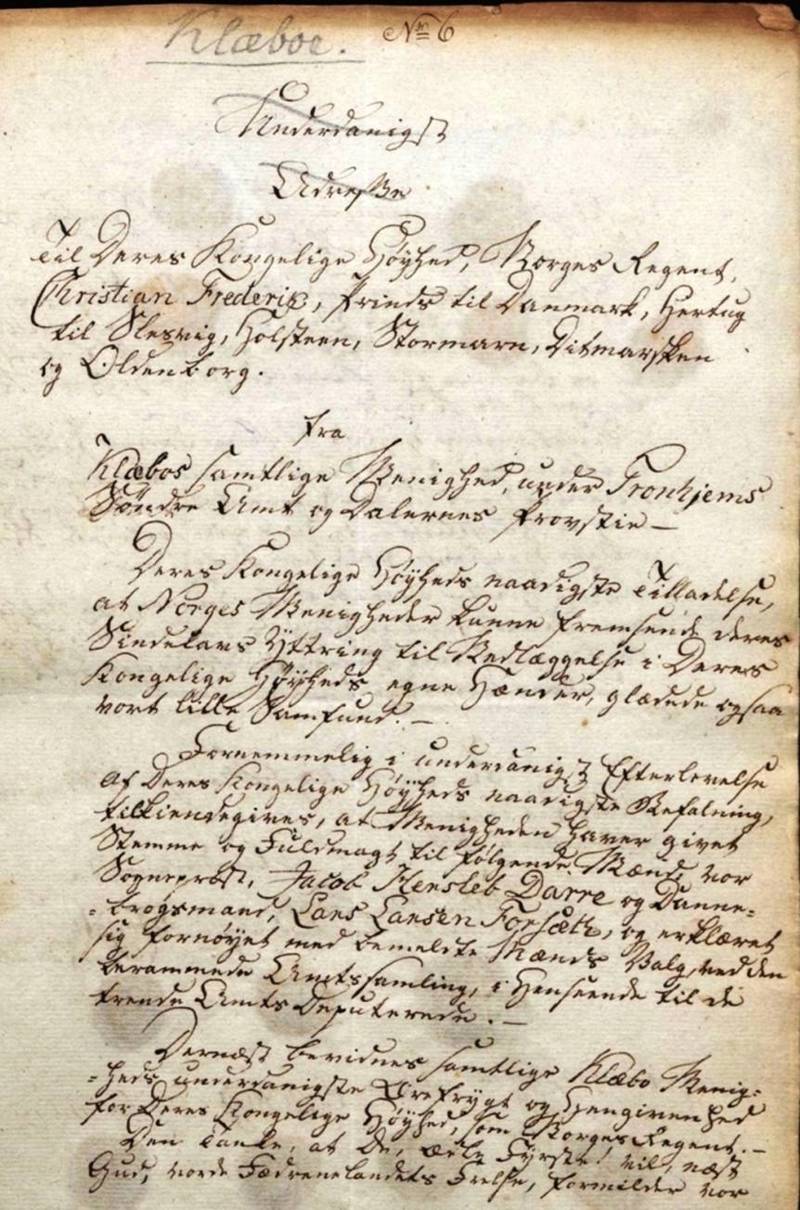 Klæboe. No 6
Underdanigst
Adresse
Til Deres Kongelige Høyhed, Norges Regent,
Christian Frederik, Prinds til Danmark, Hertug
til Slesvig, Holsteen, Stormarn, Ditmarsken
og Oldenborg.
fra
Klæbos samtlige Menighed, under Tronhjems
Søndre Amt og Dalernes Provstie –
Deres Kongelige Høyheds naadigste Tilladelse,
at Norges Menigheder kunne fremsende deres
Sindelavs Yttring til Nedlæggelse i Deres
Kongelige Høyheds egne Hænder, glædede ogsaa
vort lille Samfund. –
Fornemmelig i underdanigst Efterlevelse
af Deres Kongelige Høyheds naadigste Befalning,
tilkiendegives, at Menigheden haver givet
Stemme og Fuldmagt til følgende Mænd: vor
Sognepræst, Jacob Hersleb Darre og Danne-
-brogsmand, Lars Larsen Forsæth, og erklæret
sig fornøyet med bemeldte Mænds Valg, ved den
berammede Amtssamling, i Henseende til de
trende Amts Deputerede. –
Dernæst bevidnes samtlige Klæbo Menig-
-heds underdanigste Ærefrygt og Hengivenhed
for Deres Kongelige Høyhed, som Norges Regent. –
Den Tanke, at De, ædle Fyrste! vil, næst
Gud, vorde Fædrenelandets Frelse, formilder vor